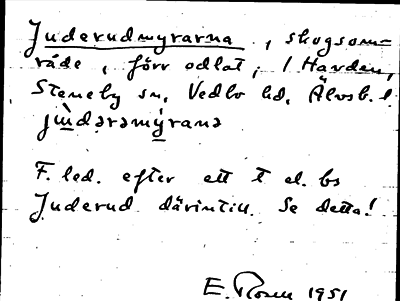 Juderudmyrarna, skogsom-
råde, förr odlat, i Harden,
Steneby sn, Vedbo hd, Älvsb. l.
jùdərəmýranə
F. led. efter ett t el. bs
Juderud därintill. Se detta!
E. Rosell 1951